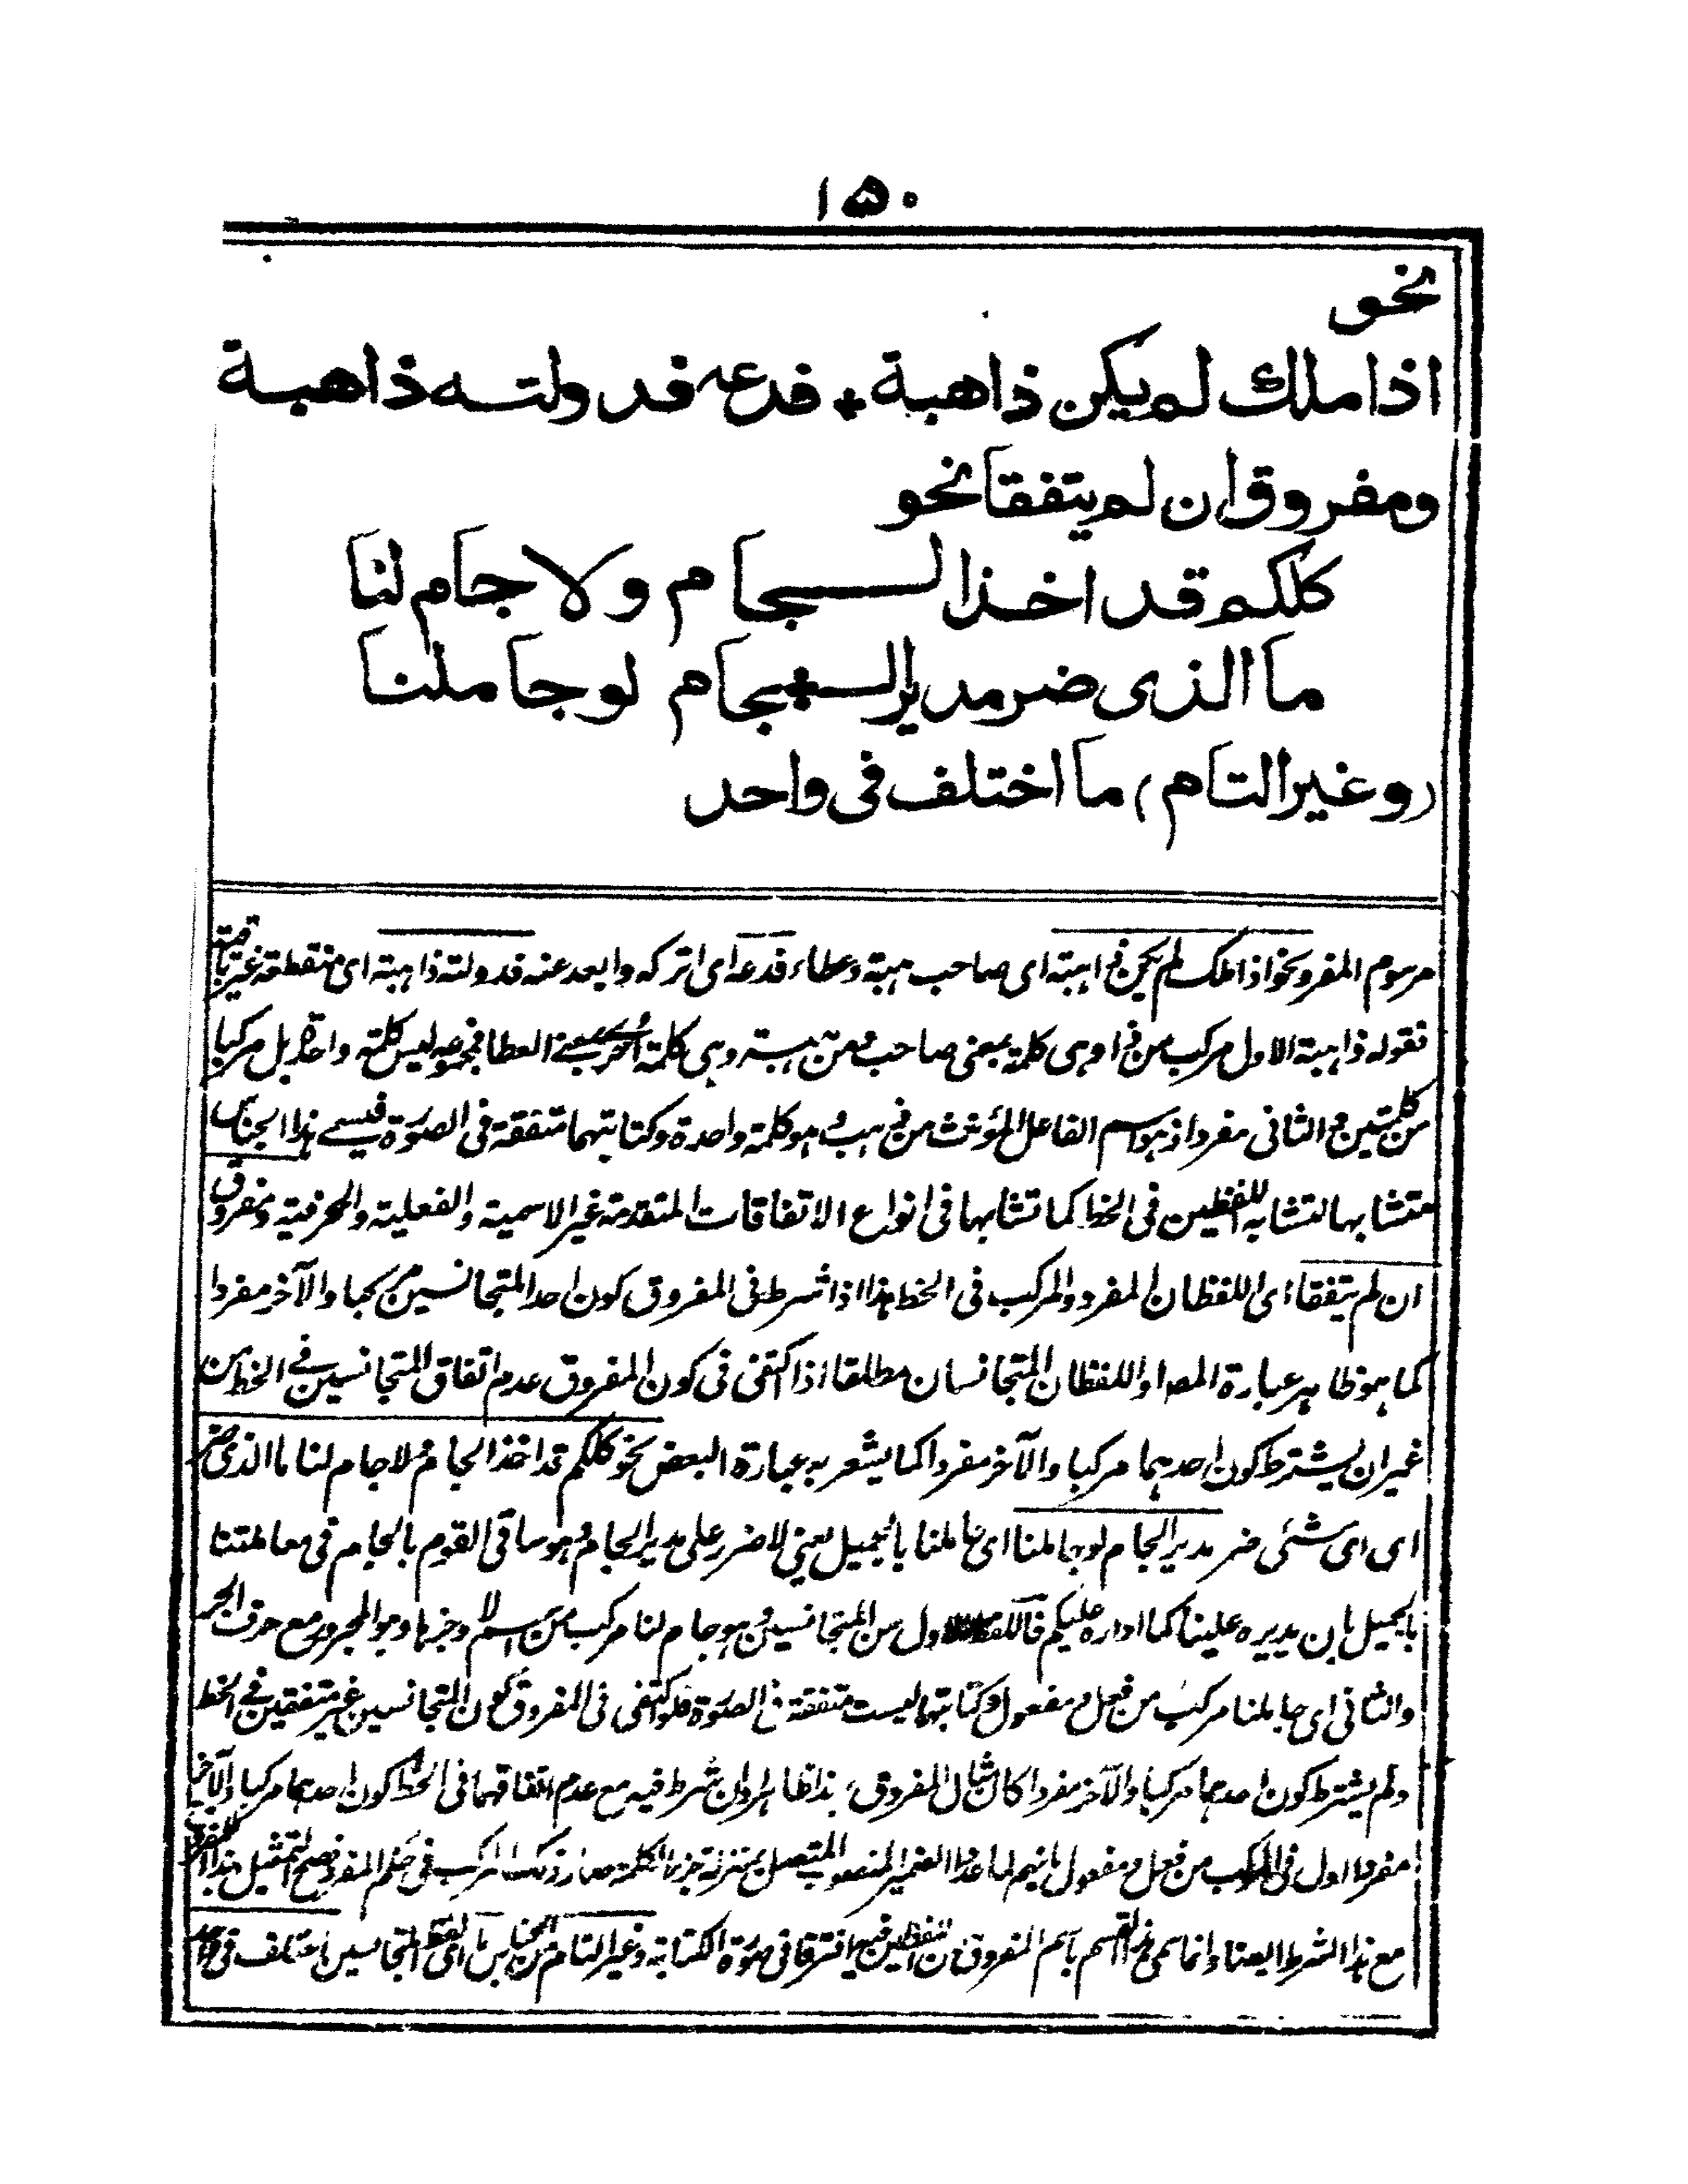 ۱۵۰
نحو
اذا ملك لم يكن ذا هبة * فدعه فدولته ذاهبة
ومفروق ان لم يتفقا نحو
كلكم قد اخذ الجام ولا جام لنا
ما الذى ضر مدير الجام لو جاملنا
(وغير التام) ما اختلف فى واحد
مرسوم المفرد نحو اذا ملك لم يكن ذا هبة اى صاحب هبة وعطاء فدعه اى اتركه وابعد عنه فدولته ذاهبة اى منقطعة غير باقية
فقوله ذا هبة الاول مركب من ذا وهى كلمة بمعنى صاحب ومن هبة وهى كلمة اخرى بمعنى العطا فمجموعه ليس كلمة واحدة بل مركبا
من كلمتين والثانى مفرد اذ هو اسم الفاعل المؤنث من ذهب وهو كلمة واحدة وكتابتهما متفقة فى الصورة فيسمى هذا الجناس
متشابها لتشابه اللفظين فى الخط كما تشابها فى انواع الاتفاقات المتقدمة غير الاسمية والفعلية والحرفية ومفروق
ان لم يتفقا اى اللفظان المفرد والمركب فى الخط هذا اذا شرط فى المفروق كون احد المتجانسين مركبا والآخر مفردا
كما هو ظاهر عبارة المص او اللفظان المتجانسان مطلقا اذا اكتفى فى كون المفروق عدم اتفاق المتجانسين فى الخط من
غير ان يشترط كون احدهما مركبا والآخر مفردا كما يشعر به عبارة البعض نحو كلكم قد اخذ الجام ولا جام لنا ما الذى ضر
اى اى شئ ضر مدير الجام لو جاملنا اى عاملنا بالجميل يعنى لا ضرر على مدير الجام وهو ساقى القوم بالجام فى معاملتنا
بالجميل بان يديره علينا كما اداره عليكم فاللفظ الاول من المتجانسين وهو جام لنا مركب من اسم لا وخبرها وهو المجرور مع حرف الجر
والثانى اى جاملنا مركب من فعل ومفعول وكتابتهما ليست متفقة فى الصورة فلو اكتفى فى المفروق كون المتجانسين غير متفقين فى الخط
ولم يشترط كون احدهما مركبا والآخر مفردا كان مثال المفروق بذا ظاهر وان شرط فيه مع عدم اتفاقهما فى الخط كون احدهما مركبا والآخر
مفردا اول فى المركب من فعل ومفعول بانهم لما عدوا الضمير المنصوب المتصل بمنزلة جزء الكلمة صار ذلك المركب فى حكم المفرد فصح التمثيل بهذا للمفروق
مع هذا الشرط ايضا وانما سمى هذا القسم باسم المفروق لان اللفظين فيه افترقا فى صورة الكتابة وغير التام من الجناس ما اى اللفظ المتجانسين اختلف فى واحد